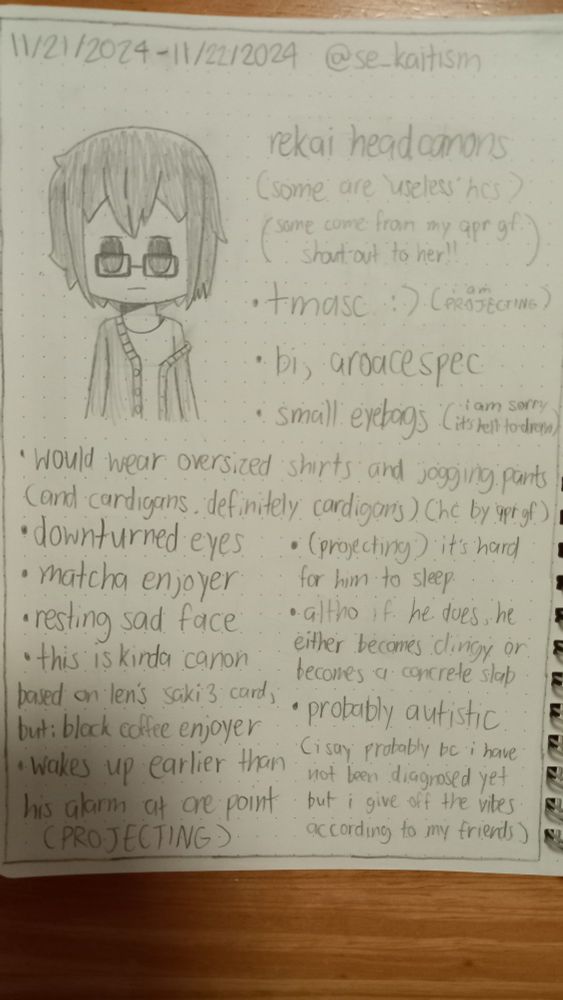 11/21/2024-11/22/2024 @se_kaitism
rekai headcanons
(some are 'useless' hcs)
(some come from my qpr gf.
shout-out to her!!)
• tmasc :) (i am PROJECTING)
• bi, aroacespec
• small eyebags (i am sorry it's hell to draw)
• would wear oversized shirts and jogging pants
(and cardigans. definitely cardigans) (hc by qpr gf)
• downturned eyes
• matcha enjoyer
• resting sad face
• this is kinda canon
based on len's saki 3 card,
but: black coffee enjoyer
• wakes up earlier than
his alarm at one point
(PROJECTING)
• (projecting) it's hard
for him to sleep
• altho if he does, he
either becomes clingy or
becomes a concrete slab
• probably autistic
(i say probably bc i have
not been diagnosed yet
but i give off the vibes
according to my friends)